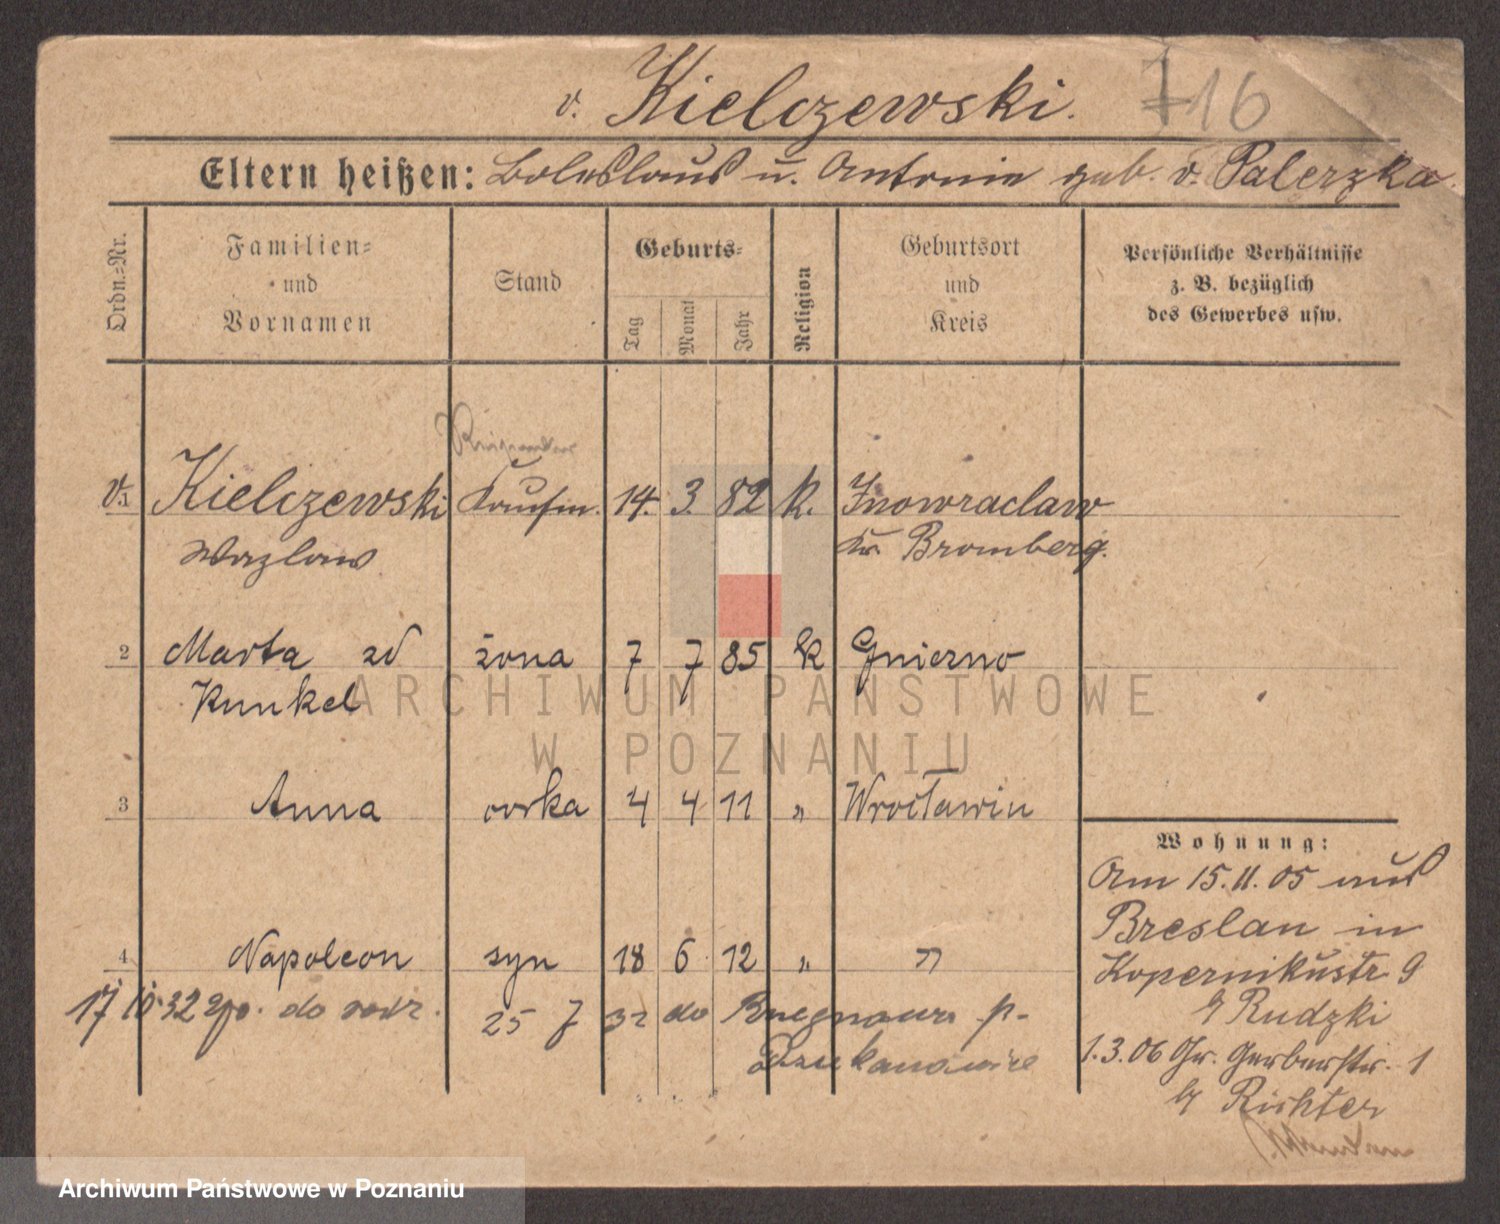 v. Kielczewski. 716
Eltern heißen: Boleslaus u. Antonie geb. v. Palerzka
Ordn.=Nr.
Familien=
und
Vornamen
Stand
Geburts=
Tag
Monat
Jahr
Religion
Geburtsort
und
Kreis
Persönliche Verhältnisse
z. B. bezüglich
des Gewerbes usw.
v. 1 Kielczewski Kaufm. 14. 3. 82 k. Inowraclaw
Wazlaw Kr. Bromberg.
2 Marta zd żona 7 7 85 k Gniezno
Kunkel
3 Anna córka 4 4 11 „ Wrocławiu
4 Napoleon syn 18 6 12 „ „
17 10 32 do 25 7 32 do p.
Wohnung:
Am 15.11.05 aus
Breslau in
Kopernikustr 9
b/ Rudzki
1.3.06 Gr. Gerberstr. 1
b/ Richter
ARCHIWUM PAŃSTWOWE
W POZNANIU
Archiwum Państwowe w Poznaniu